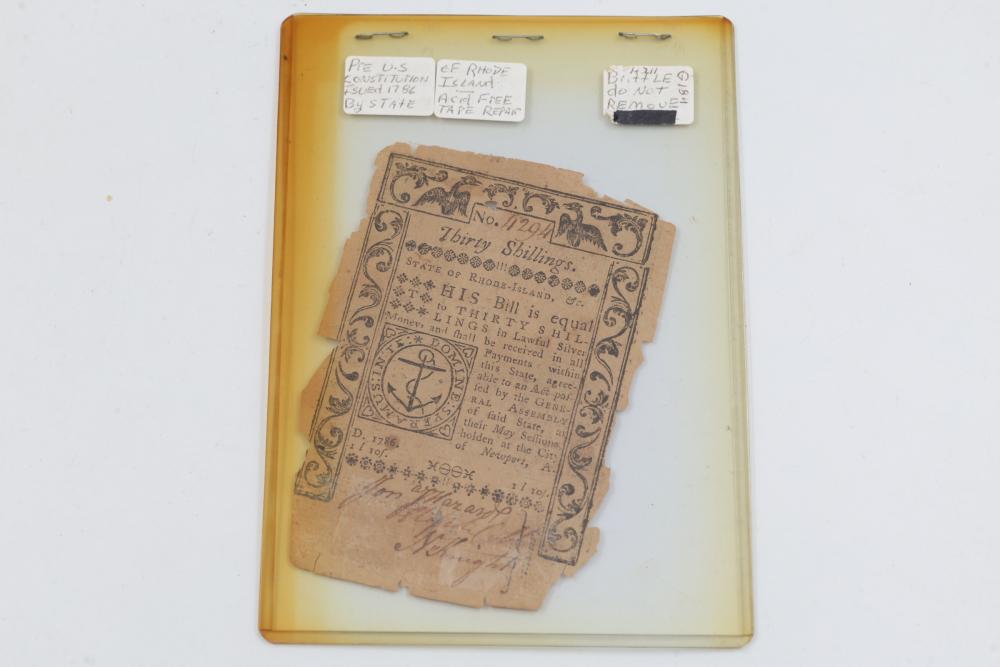 PrE U.S
CONSTITUTION
ISSUED 1786
By STATE
OF RHODE
ISLAND
ACID FREE
TAPE REPAIR
BrITTLE
do NOT
REMOVE
No. 4294
Thirty Shillings.
STATE OF RHODE-ISLAND, &c.
THIS Bill is equal
to THIRTY SHIL-
LINGS in Lawful Silver
Money, and shall be received in all
Payments within
this State, agree-
able to an Act pas-
sed by the GENE-
RAL ASSEMBLY
of said State, at
their May Sessions,
holden at the City
of Newport, A.
D. 1786.
1 l 10s. 1 l 10s.
IN TE DOMINE SPERAMUS
Hazard